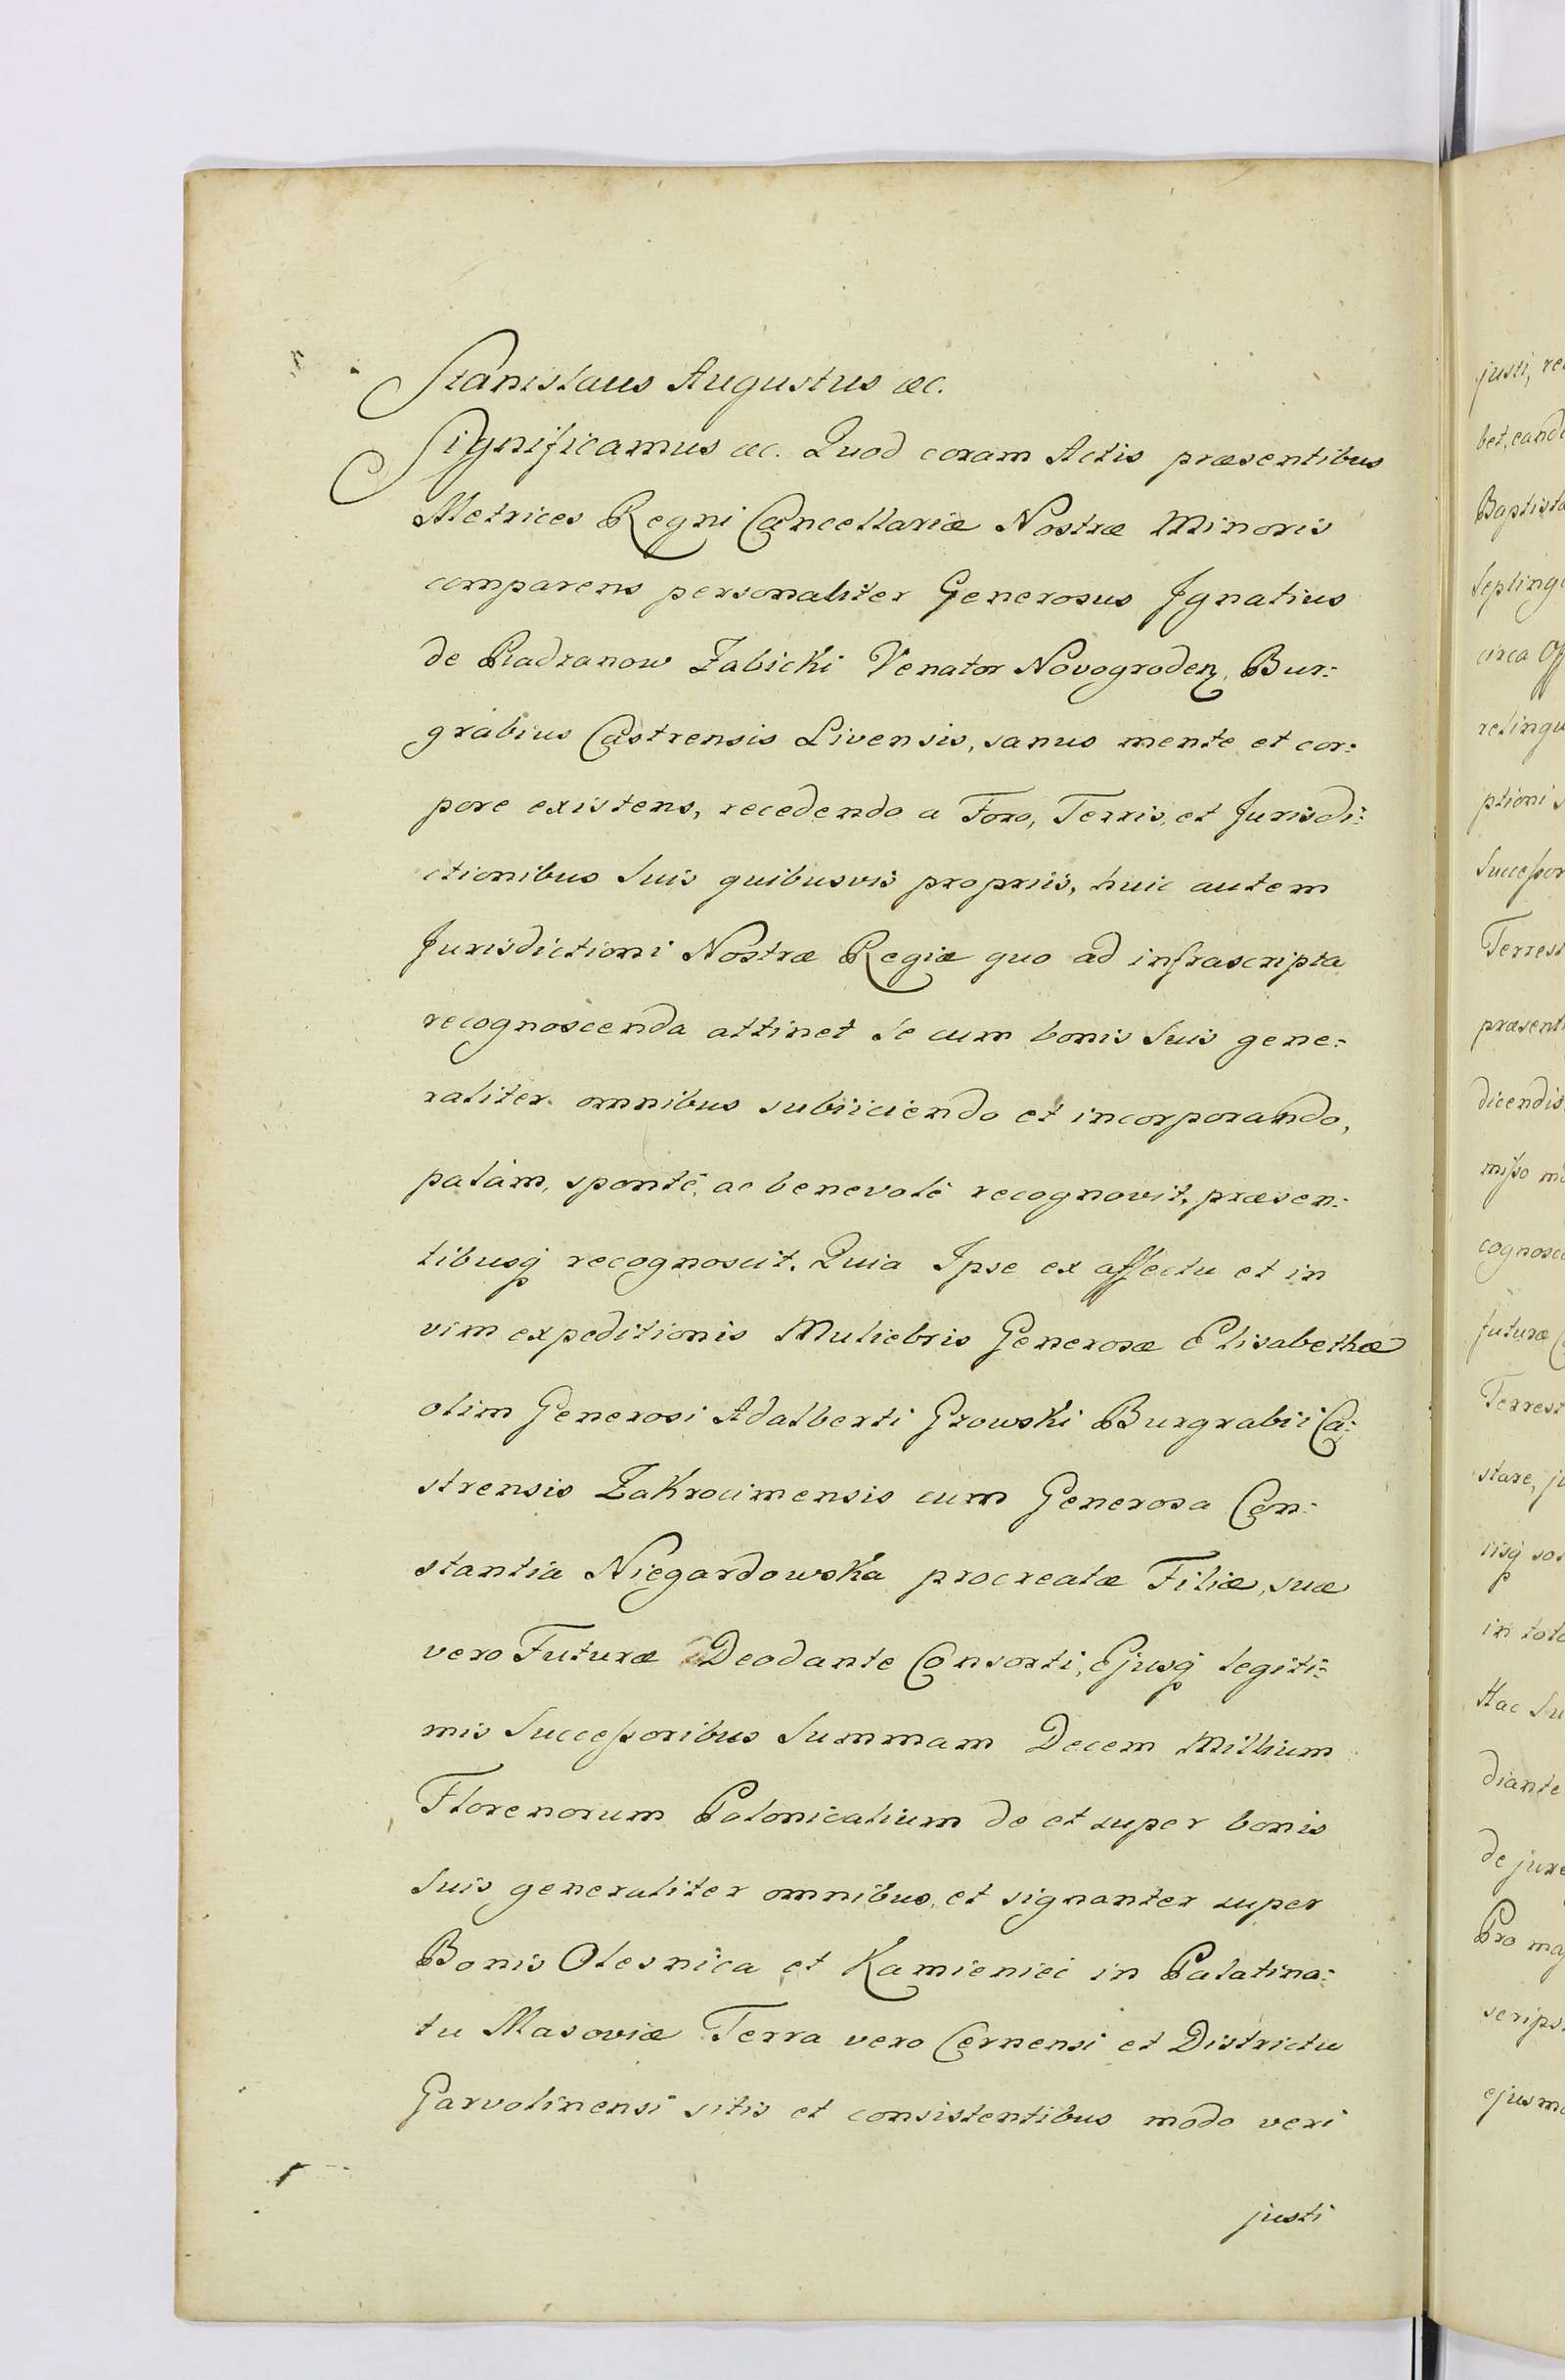 Stanislaus Augustus æc.
Significamus æc. Quod coram Actis præsentibus
Metrices Regni Cancellariæ Nostræ Minoris
comparens personaliter Generosus Ignatius
de Radzanow Zabicki Venator Novogroden, Bur:
grabius Castrensis Livensis, sanus mente et cor:
pore existens, recedendo a Foro, Terris, et Jurisdi:
ctionibus Suis quibusvis propriis, huic autem
Jurisdictioni Nostræ Regiæ quo ad infrascripta
recognoscenda attinet Se cum bonis Suis gene:
raliter omnibus subiiciendo et incorporando,
palàm, spontè, ac benevolè recognovit, præsen:
tibusq recognoscit. Quia Ipse ex affectu et in
vim expeditionis Muliebris Generosæ Elisabethæ
olim Generosi Adalberti Gzowski Burgrabii Ca:
strensis Zakrocimensis cum Generosa Con:
stantia Niegardowska procreatæ Filiæ, suæ
vero Futuræ Deodante Consorti, Ejusq legiti:
mis Successoribus Summam Decem Millium
Florenorum Polonicalium de et super bonis
Suis generaliter omnibus, et signanter super
Bonis Olesnica et Kamieniec in Palatina:
tu Masoviæ Terra vero Cernensi et Districtu
Garvolinensi sitis et consistentibus modo veri
justi
justi, re
bet, eand
Baptista
Septing
circa Off
relinqu
ptioni s
Successor
Terrest
præsent
dicendis
misso mo
cognosc
futuræ
Terrest
stare, ju
iisq so
in toto
Hac Su
diante
de jure
Pro ma
scrips
ejusmo